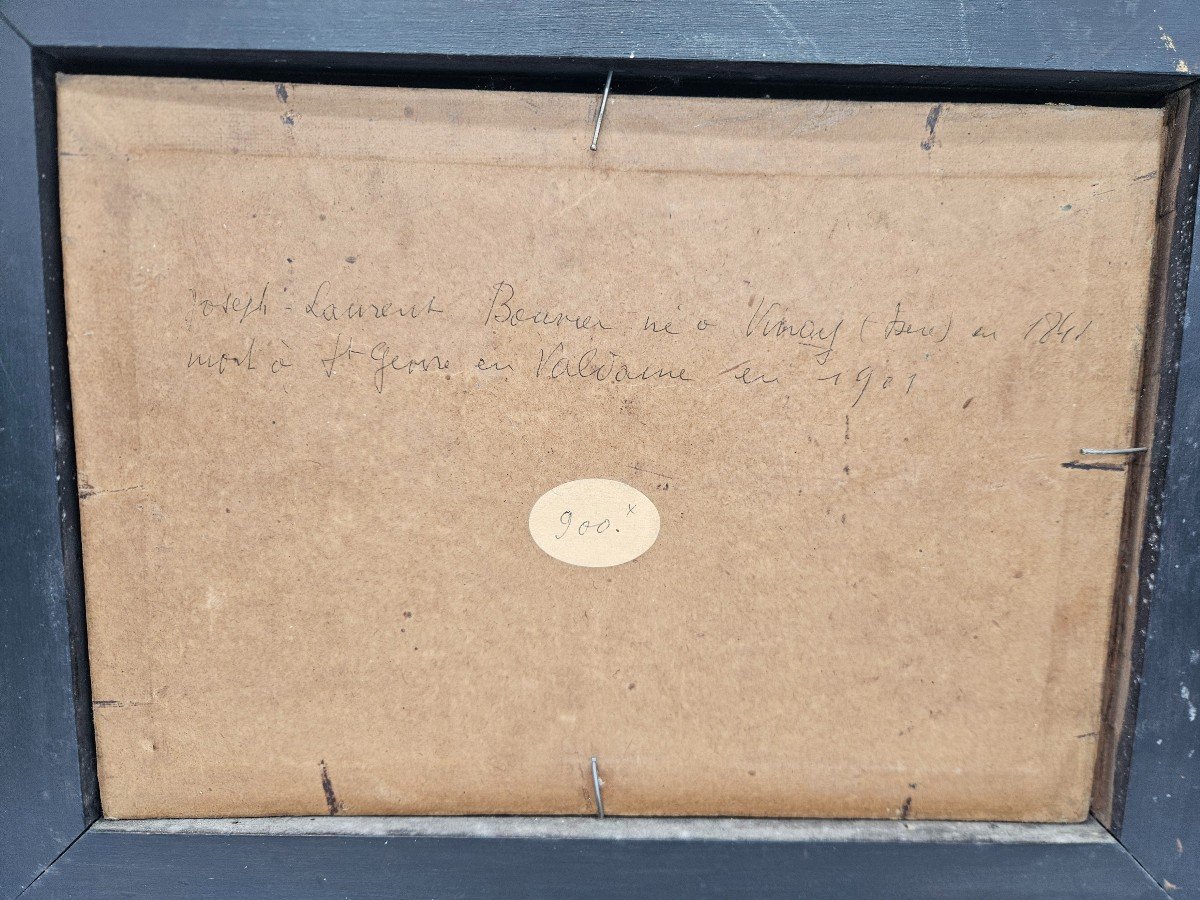 Joseph-Laurent Bouvier né à Vinay (Isère) en 1841
mort à St Geoire en Valdaine en 1901
900.x